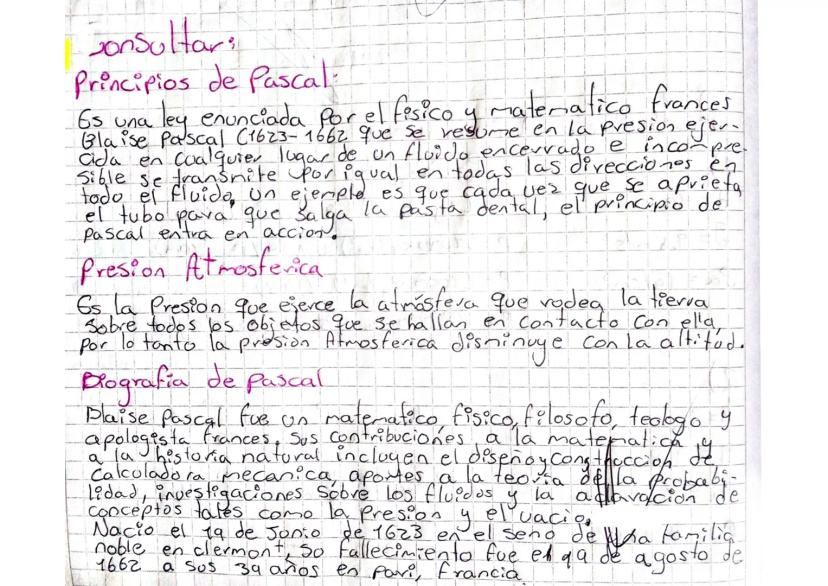 consultar:
Principios de Pascal:
Es una ley enunciada por el físico y matematico frances
Blaise Pascal (1623-1662 que se resume en la presion ejer-
cida en cualquier lugar de un fluido encerrado e incompre-
sible se transnite por igual en todas las direcciones en
todo el fluido, un ejemplo es que cada vez que se aprieta
el tubo para que salga la pasta dental, el principio de
Pascal entra en accion.
Presion Atmosferica
Es la Presion que ejerce la atmósfera que rodea la tierra
sobre todos los objetos que se hallan en contacto con ella,
por lo tanto la presion Atmosferica disminuye con la altitud.
Biografia de Pascal
Blaise Pascal fue un matematico, físico, filosofo, teologo y
apologista frances. Sus contribuciones a la matematica y
a la historia natural incluyen el diseño y construccion de
calculadora mecanica, aportes a la teoria de la probabi-
lidad, investigaciones sobre los fluidos y la aclaracion de
conceptos tales como la presion y el vacio.
Nacio el 19 de Junio de 1623 en el seno de una familia
noble en clermont, so fallecimiento fue el 19 de agosto de
1662 a sus 39 años en Pari, Francia